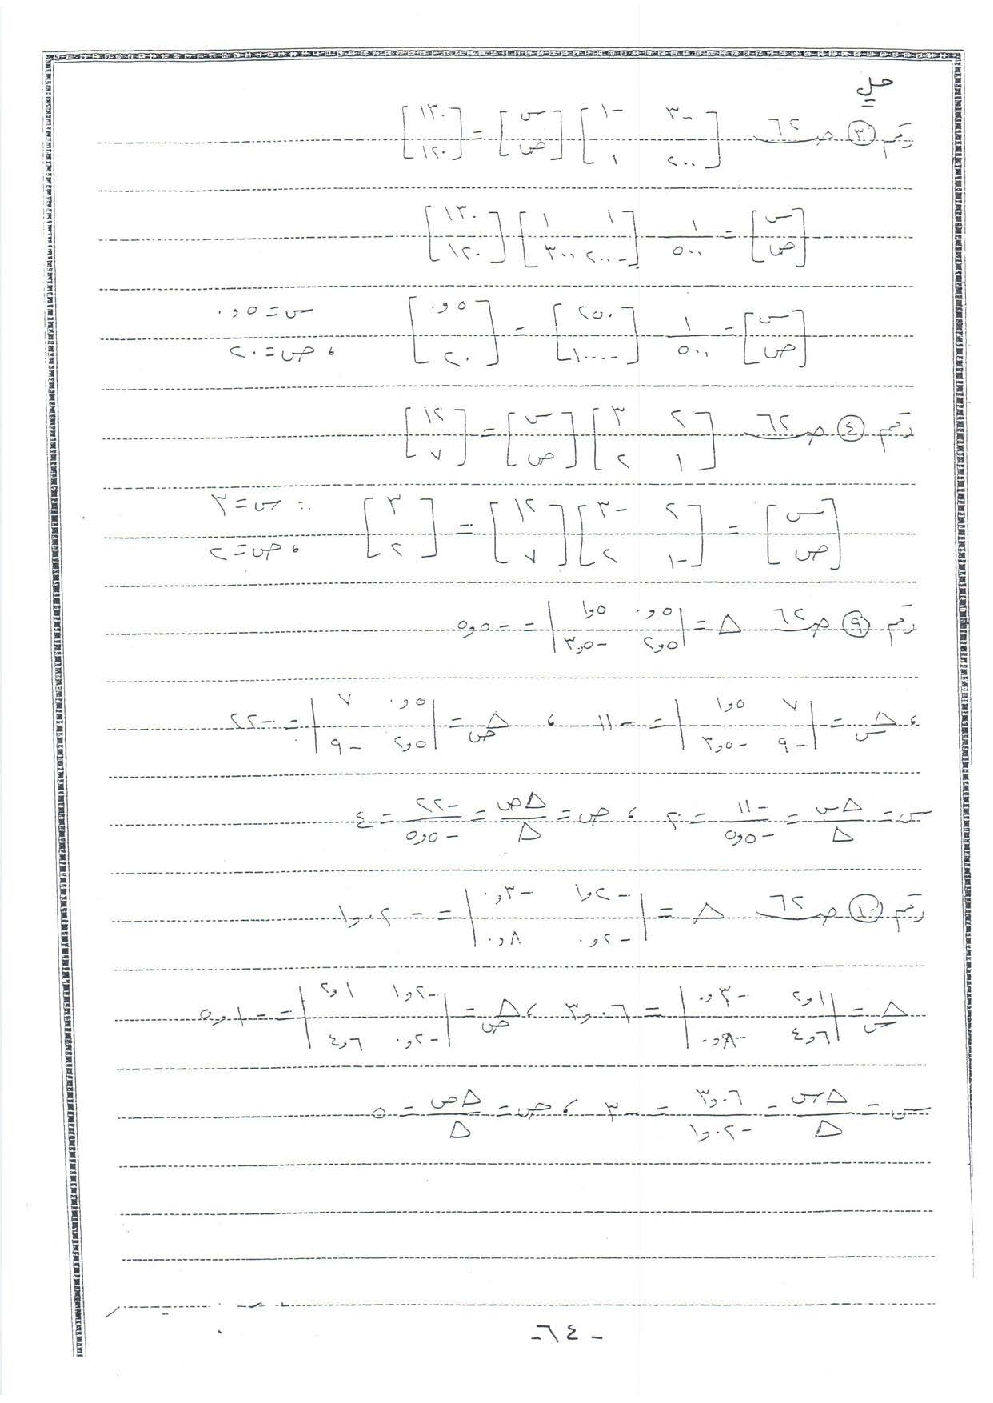 حل
رقم ③ ص ٦٢ [٣٠٠ -١ ; ٢٠٠ ١] [س ; ص] = [١٣٠ ; ١٢٠]
[س ; ص] = ١/٥٠٠ [١ ١ ; -٢٠٠ ٣٠٠] [١٣٠ ; ١٢٠]
[س ; ص] = ١/٥٠٠ [٢٥٠ ; ١٠٠٠٠] = [٠,٥ ; ٢٠] س = ٠,٥
، ص = ٢٠
رقم ④ ص ٦٢ [٢ ٣ ; ١ ٢] [س ; ص] = [١٢ ; ٧]
[س ; ص] = [٢ -٣ ; -١ ٢] [١٢ ; ٧] = [٣ ; ٢] ∴ س = ٣
، ص = ٢
رقم ⑨ ص ٦٢ Δ = |٠,٥ ١,٥ ; ٢,٥ -٣,٥| = -٥,٥
، Δس = |٧ ١,٥ ; -٩ -٣,٥| = -١١ ، Δص = |٠,٥ ٧ ; ٢,٥ -٩| = -٢٢
س = Δس/Δ = -١١/-٥,٥ = ٢ ، ص = Δص/Δ = -٢٢/-٥,٥ = ٤
رقم ⑩ ص ٦٢ Δ = |-١,٢ -٠,٣ ; -٠,٢ ٠,٨| = -١,٠٢
Δس = |٢,١ -٠,٣ ; ٤,٦ ٠,٨| = ٣,٠٦ ، Δص = |-١,٢ ٢,١ ; -٠,٢ ٤,٦| = -٥,١٠
س = Δس/Δ = ٣,٠٦/-١,٠٢ = -٣ ، ص = Δص/Δ = ٥
-٦٤-